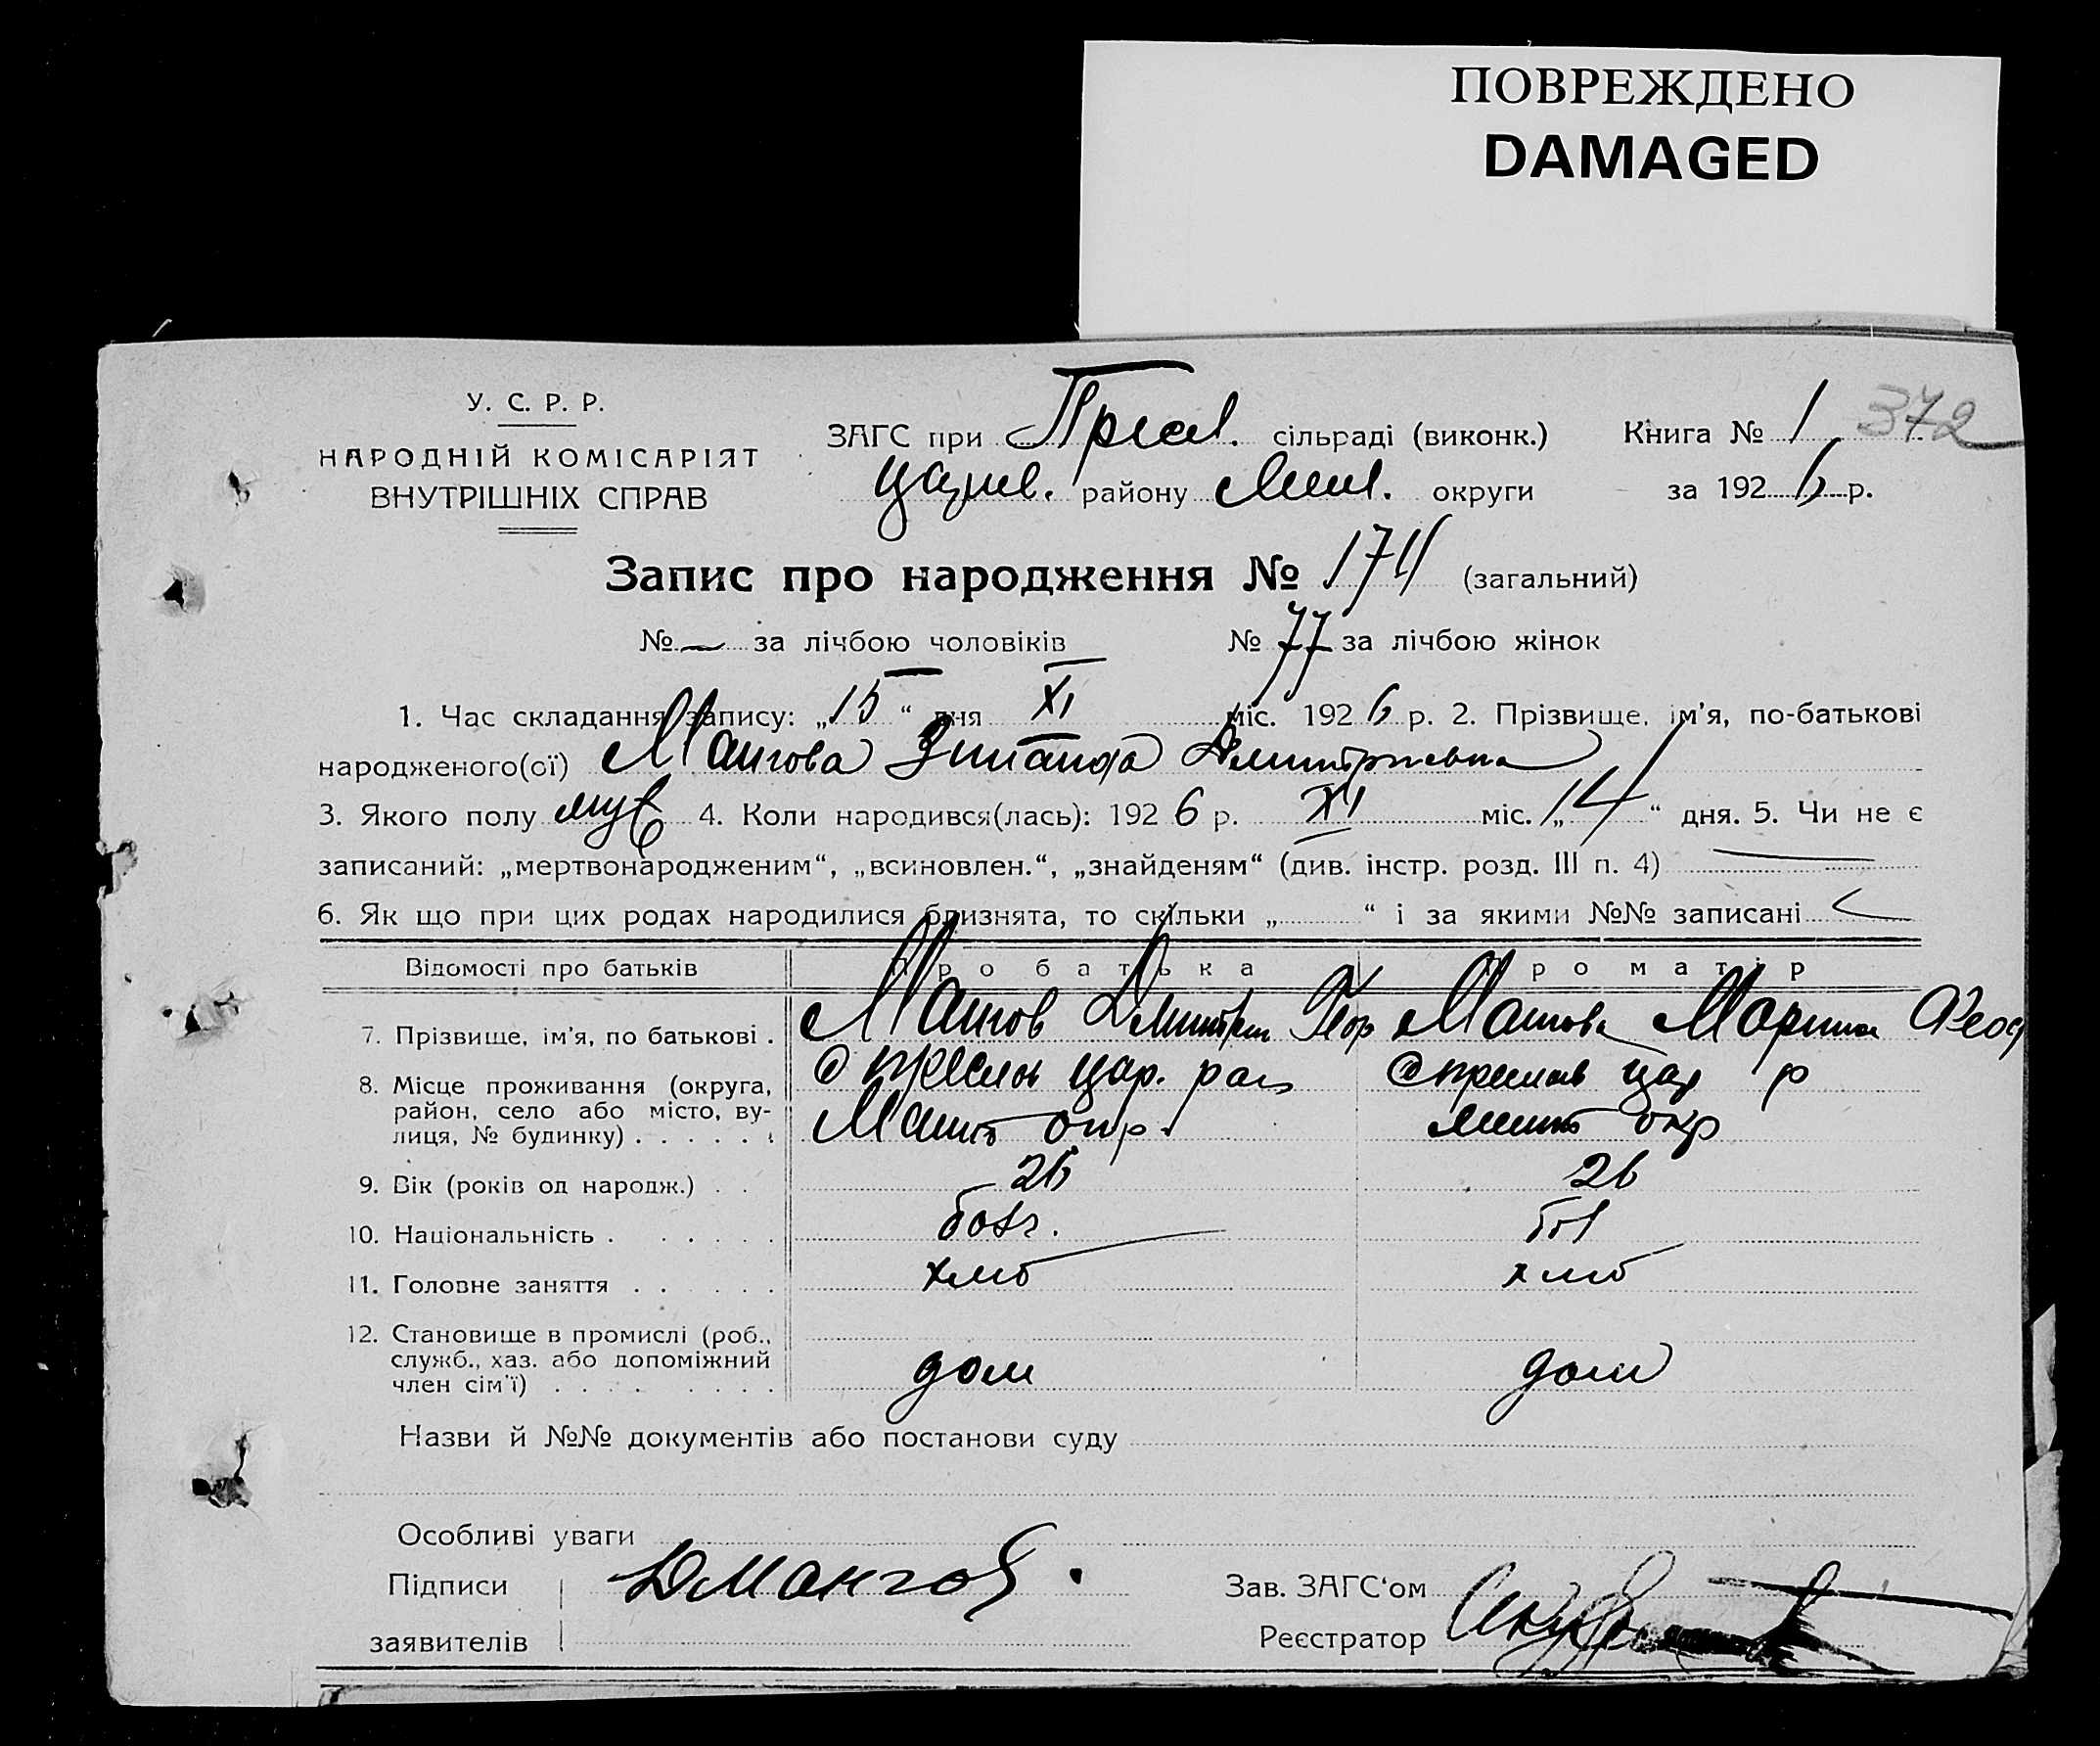 ПОВРЕЖДЕНО
DAMAGED
У. С. Р. Р.
НАРОДНІЙ КОМІСАРІЯТ
ВНУТРІШНІХ СПРАВ
ЗАГС при Пресл. сільраді (виконк.)
району округи
Книга № 1 372
за 1926 р.
Запис про народження № 174 (загальний)
№ — за лічбою чоловіків № 77 за лічбою жінок
1. Час складання запису: „15“ дня XI міс. 1926 р. 2. Прізвище, ім’я, по-батькові
народженого(ої) Мангова Зинаида Дмитриевна
3. Якого полу 4. Коли народився(лась): 1926 р. XI міс. „14“ дня. 5. Чи не є
записаний: „мертвонародженим“, „всиновлен.“, „знайденям“ (див. інстр. розд. III п. 4) —
6. Як що при цих родах народилися близнята, то скільки „ “ і за якими №№ записані
Відомості про батьків Про батька Про матір
7. Прізвище, ім’я, по батькові . Мангов Дмитрий Геор Мангова Марина Феод
8. Місце проживання (округа, с Преслав Цар. рай с Преслав Цар р
район, село або місто, ву-
лиця, № будинку) . . . . . . окр. окр
9. Вік (років од народж.) . . 26 26
10. Національність . . . . . . болг.
11. Головне заняття . . . . . . хлиб хлиб
12. Становище в промислі (роб.,
служб., хаз. або допоміжний
член сім’ї) . . . . . . . . дом дом
Назви й №№ документів або постанови суду
Особливі уваги
Підписи ДМангов.
заявителів
Зав. ЗАГС‘ом
Реєстратор